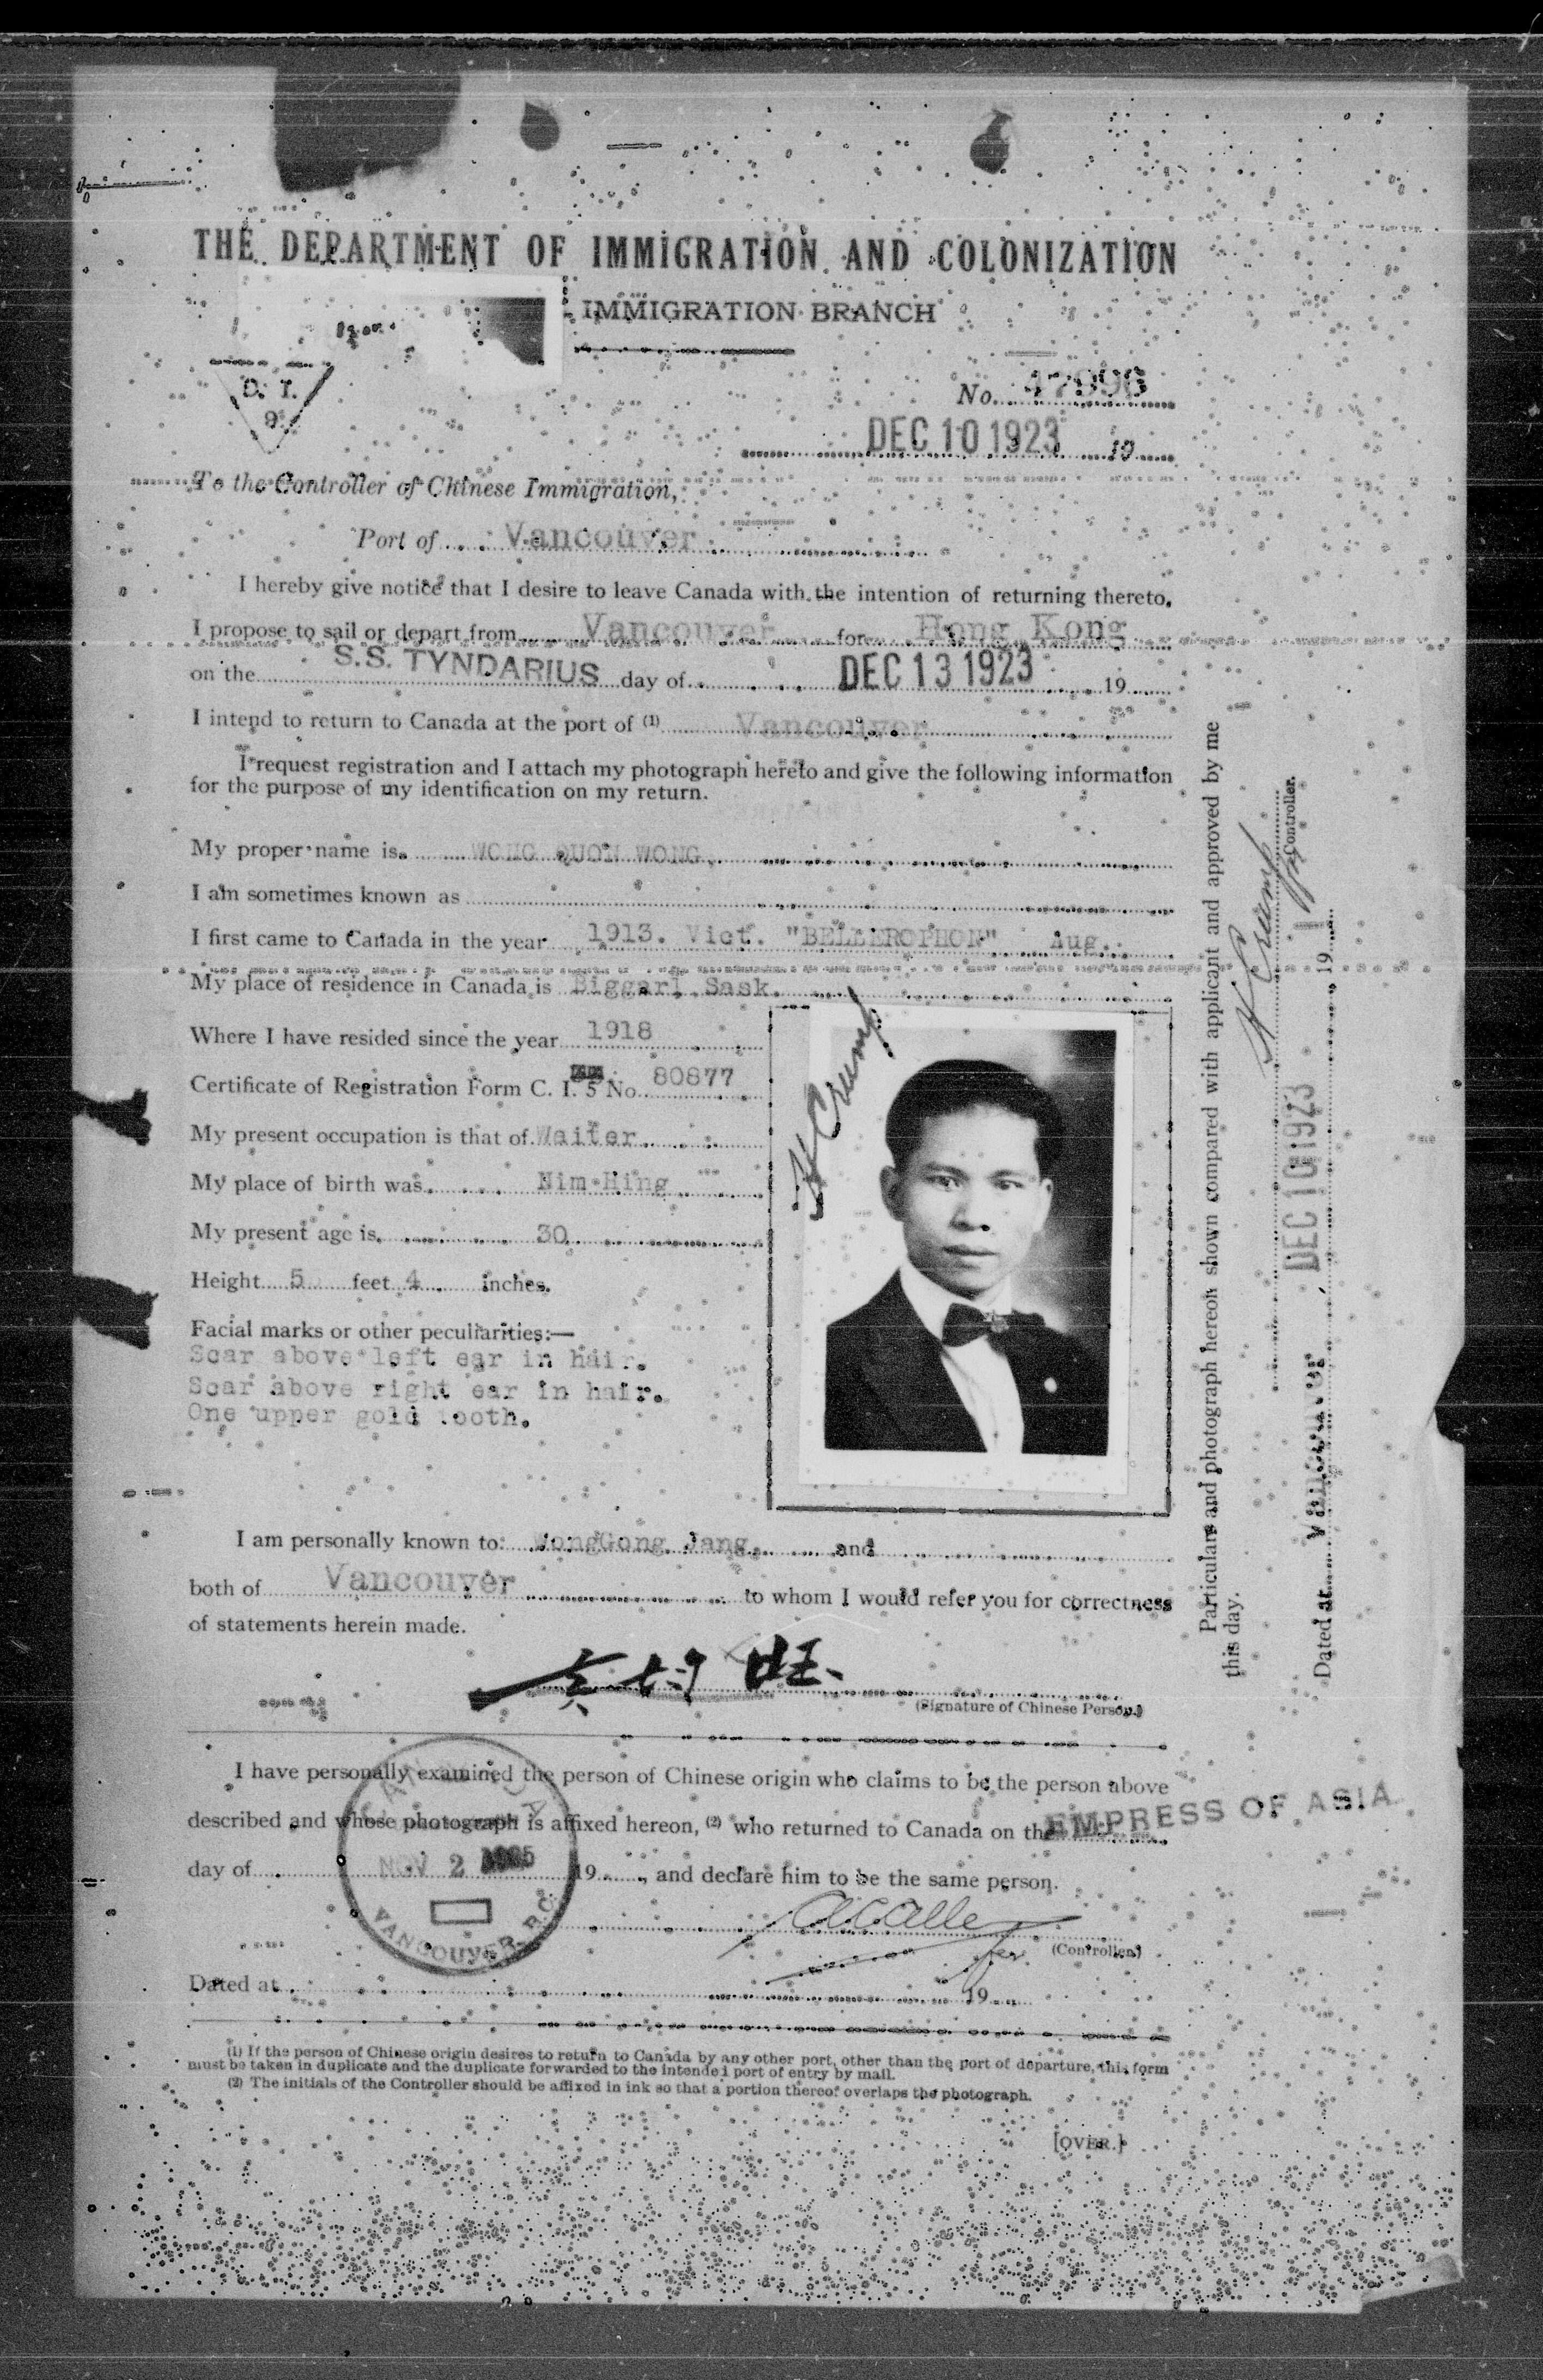 THE DEPARTMENT OF IMMIGRATION AND COLONIZATION
IMMIGRATION BRANCH
C. I.
9
No. 47996
DEC 10 1923 19
To the Controller of Chinese Immigration,
Port of Vancouver
I hereby give notice that I desire to leave Canada with the intention of returning thereto.
I propose to sail or depart from Vancouver for Hong Kong
on the S.S. TYNDARIUS day of DEC 13 1923 19
I intend to return to Canada at the port of (1) Vancouver
I request registration and I attach my photograph hereto and give the following information
for the purpose of my identification on my return.
My proper name is WONG QUON WONG.
I am sometimes known as
I first came to Canada in the year 1913. Vict. "BELLEROPHON" Aug.
My place of residence in Canada is Biggarl Sask.
Where I have resided since the year 1918
Certificate of Registration Form C. I. 5 No. 80877
My present occupation is that of Waiter
My place of birth was Nim Hing
My present age is 30
Height 5 feet 4 inches.
Facial marks or other peculiarities:—
Scar above left ear in hair.
Scar above right ear in hair.
One upper gold tooth.
H Crump
I am personally known to WongGong Jang, and
both of Vancouver to whom I would refer you for correctness
of statements herein made.
(Signature of Chinese Person.)
I have personally examined the person of Chinese origin who claims to be the person above
described and whose photograph is affixed hereon, (2) who returned to Canada on the EMPRESS OF ASIA
day of 19 , and declare him to be the same person.
NOV 2 1925
VANCOUVER, B.C.
for (Controller)
Dated at 19
(1) If the person of Chinese origin desires to return to Canada by any other port, other than the port of departure, this form
must be taken in duplicate and the duplicate forwarded to the intended port of entry by mail.
(2) The initials of the Controller should be affixed in ink so that a portion thereof overlaps the photograph.
[OVER.]
Particulars and photograph hereon shown compared with applicant and approved by me
this day.
H Crump
Controller.
Dated at Vancouver DEC 10 1923 , 19